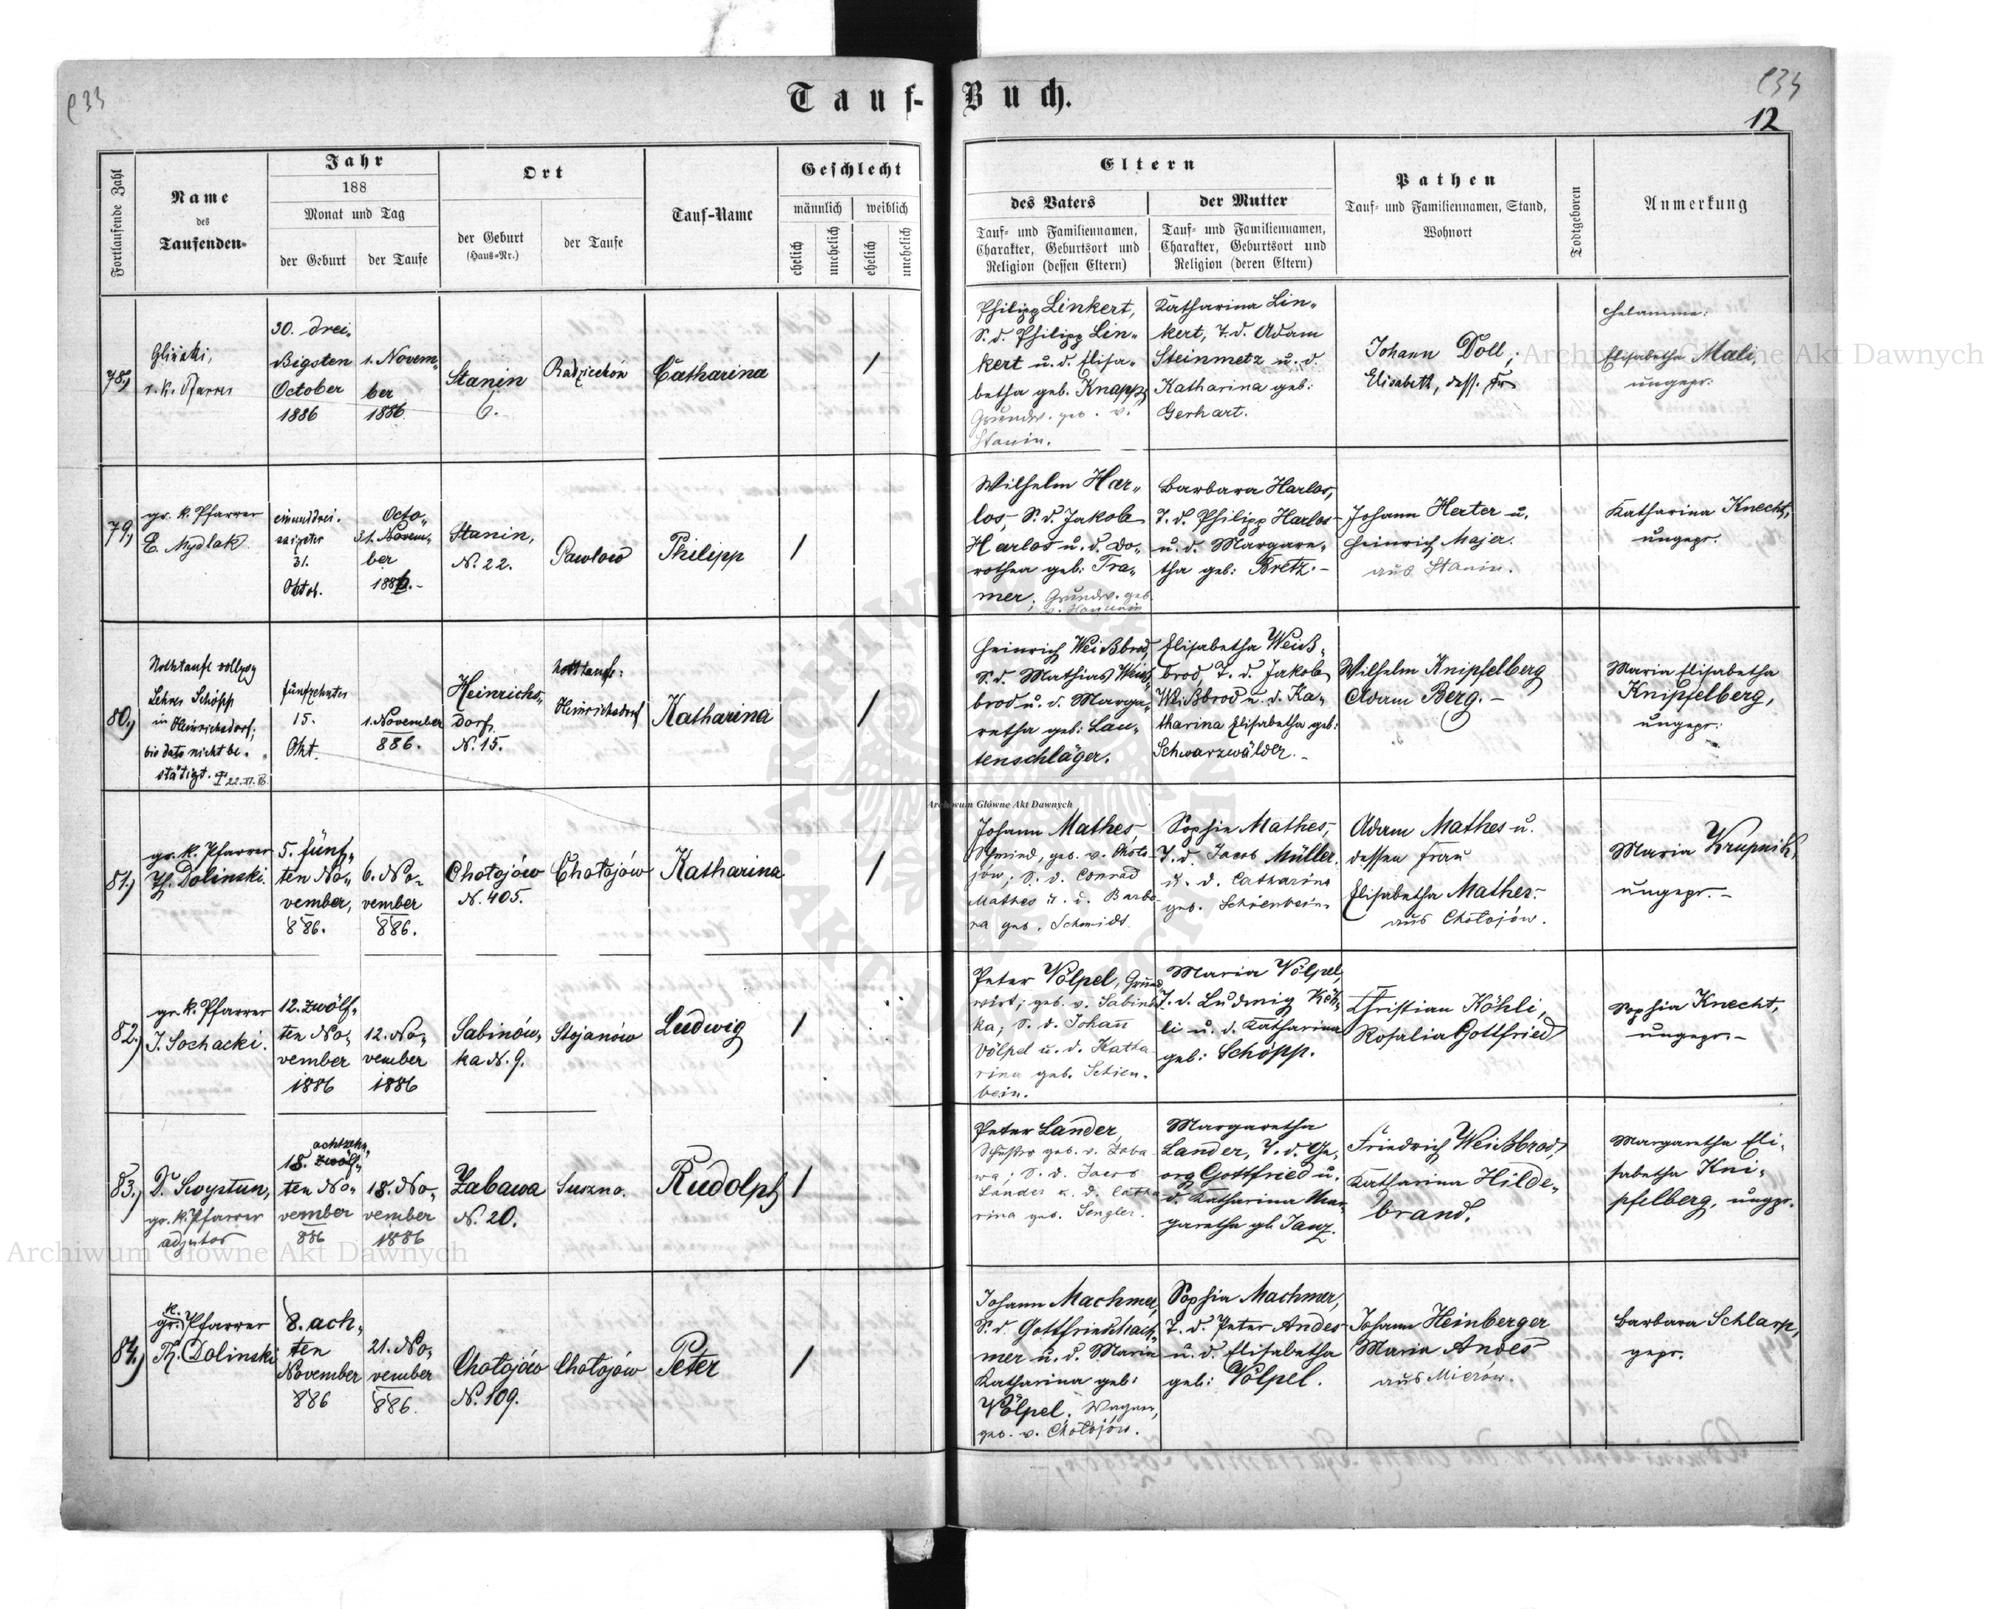 Tauf-Buch.
12
Fortlaufende Zahl
Name
des
Taufenden
Jahr
188
Monat und Tag
der Geburt
der Taufe
Ort
der Geburt
(Haus-Nr.)
der Taufe
Tauf-Name
Geschlecht
männlich
weiblich
ehelich
unehelich
ehelich
unehelich
Eltern
des Vaters
Tauf- und Familiennamen,
Charakter, Geburtsort und
Religion (dessen Eltern)
der Mutter
Tauf- und Familiennamen,
Charakter, Geburtsort und
Religion (deren Eltern)
Pathen
Tauf- und Familiennamen, Stand,
Wohnort
Todtgeboren
Anmerkung
78.,
r. k. Pfarrer
30. drei-
ßigsten
October
1886
1. Novem-
ber
1886
Stanin
6.
Radziechów
Catharina
/
Philipp Linkert,
S. d. Philipp Lin-
kert u. d. Elisa-
betha geb. Knapp
Grundw. geb. v.
Stanin.
Katharina Lin-
kert, T. d. Adam
Steinmetz u. d.
Katharina geb:
Gerhart.
Johann Doll,
Elisabeth, dess. Fr
Hebamme:
Elisabetha Mali,
ungepr.
79.,
gr. k. Pfarrer
E. Mydlak
einunddrei-
ssigster
31.
Oktob.
Octo-
31. Novem-
ber
1886.-
Stanin,
N. 22.
Pawlow
Philipp
/
Wilhelm Har-
los, S. d. Jakob
Harlos u. d. Do-
rothea geb: Tra-
mer. Grundw. geb.
Barbara Harlos,
T. d. Philipp Harlos
u. d. Margare-
tha geb: Bretz.-
Johann Herter u.
Heinrich Majer.
aus Stanin.
Katharina Knecht,
ungepr.
80.,
Nothtaufe vollzog
Lehrer Schöpp
in Heinrichsdorf;
bis dato nicht be-
stätigt. 22. XI. 86.
fünfzehnter
15.
Okt.
1. November
886.
Heinrichs-
dorf.
N. 15.
Nothtaufe:
Heinrichsdorf
Katharina
/
Heinrich Weißbrod,
S. d. Mathias Weiß-
brod u. d. Marga-
retha geb: Lau-
tenschläger.
Elisabetha Weiß-
brod, T. d. Jakob
Weißbrod u. d. Ka-
tharina Elisabetha geb:
Schwarzwälder.-
Wilhelm Knipfelberg
Adam Berg.-
Maria Elisabetha
Knipfelberg,
ungepr:
81.,
gr. k. Pfarrer
Th. Dolinski.
5. fünf-
ten No-
vember,
886.
6. No-
vember
886.
Chołojów
N. 405.
Chołojów
Katharina
/
Johann Mathes,
Schmied, geb. v. Choło-
jów; S. d. Conrad
Mathes u. d. Barba-
ra geb. Schmidt.
Sophie Mathes,
T. d. Jacob Müller
u. d. Catharina
geb. Schienbein.
Adam Mathes u.
dessen Frau
Elisabetha Mathes.
aus Chołojów.
Maria Krupnik,
ungepr.-
82.,
gr. k. Pfarrer
J. Sochacki.
12. zwölf-
ten No-
vember
1886
12. No-
vember
1886
Sabinów-
ka N. 9.
Stojanów
Ludwig
/
Peter Völpel, Grund-
wirt, geb. v. Sabinów-
ka; S. d. Johann
Völpel u. d. Katha-
rina geb. Schien-
bein.
Maria Völpel,
T. d. Ludwig Köh-
li u. d. Katharina
geb: Schöpp.
Christian Köhli,
Rosalia Gottfried
Sophia Knecht,
ungepr.-
83.,
D. Swystun,
gr. k. Pfarrer
adjutor
achtzehn-
18. zwölf-
ten No-
vember
886
18. No-
vember
1886
Zabawa
N. 20.
Suszno.
Rudolph
/
Peter Lander
Schuster geb. v. Zaba-
wa; S. d. Jacob
Lander u. d. Catha-
rina geb. Sengler.
Margaretha
Lander, T. d. Ge-
org Gottfried u.
d. Katharina Mar-
garetha gb. Janz.
Friedrich Weißbrod,
Katharina Hilde-
brand.
Margaretha Eli-
sabetha Kni-
pfelberg, ungepr.
84.,
gr. k. Pfarrer
Th. Dolinski
8. ach-
ten
November
886
21. No-
vember
886.
Chołojów
N. 109.
Chołojów
Peter
/
Johann Machmer,
S. d. Gottfried Mach-
mer u. d. Maria
Katharina geb:
Völpel. Wagner,
geb. v. Chołojów.
Sophia Machmer,
T. d. Peter Andes
u. d. Elisabetha
geb: Völpel.
Johann Heinberger
Maria Andes
aus Mierów.
Barbara Schlarp,
gepr.
Archiwum Główne Akt Dawnych
Archiwum Główne Akt Dawnych
Archiwum Główne Akt Dawnych